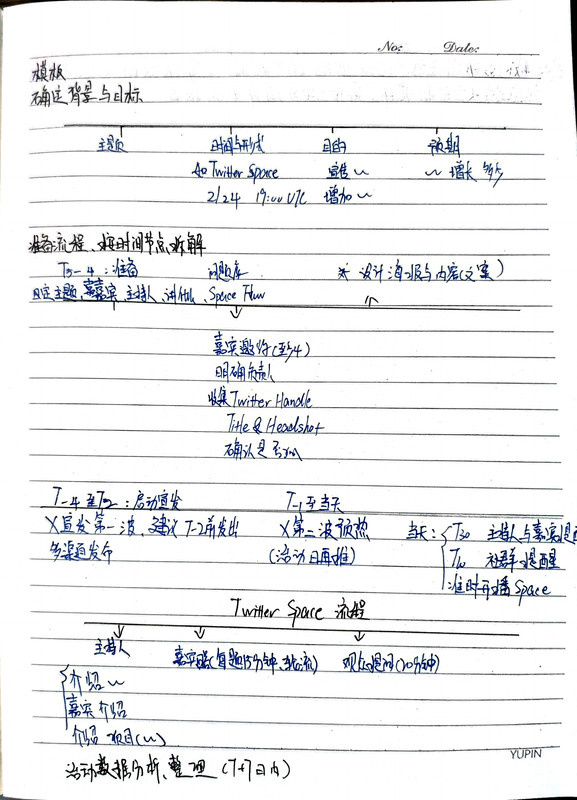 No: Date:
模板
确定背景与目标
主题 时间与形式 目的 预期
Twitter Space 宣传 ~ ~ 增长
2/24 17:00 UTC 增加 ~
准备流程、按时间节点拆解
准备 问题库 * 设计海报与内容(文案)
主题、嘉宾、主持人、讲什么、Space Flow
嘉宾邀约(至少4)
明确负责人
收集 Twitter Handle
Title & Headshot
确认是否
T-4 至 T-2 : 启动宣发 T-1 至当天
X 宣发第一波 建议 T-2 前发出 X 第二波预热 当天: T30 主持人与嘉宾提醒
多渠道发布 (活动日再推) T10 社群提醒
准时开播 Space
Twitter Space 流程
主持人 嘉宾 (每题15分钟、 观众提问(20分钟)
介绍 ~
嘉宾介绍
介绍 项目(~)
活动数据分析、整理 (T+7日内)
YUPIN